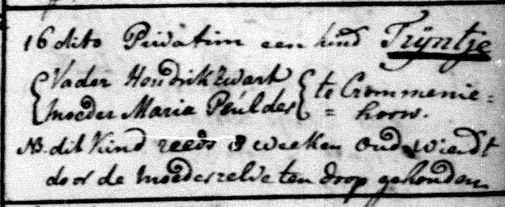 16 dito Privatim een kind Trijntje
Vader Hendrik Zwart
Moeder Maria Peulder te Crommenie=
= hoorn.
NB. dit Kind reeds 3 weeken oud wierdt
door de moeder zelve ten doop gehouden